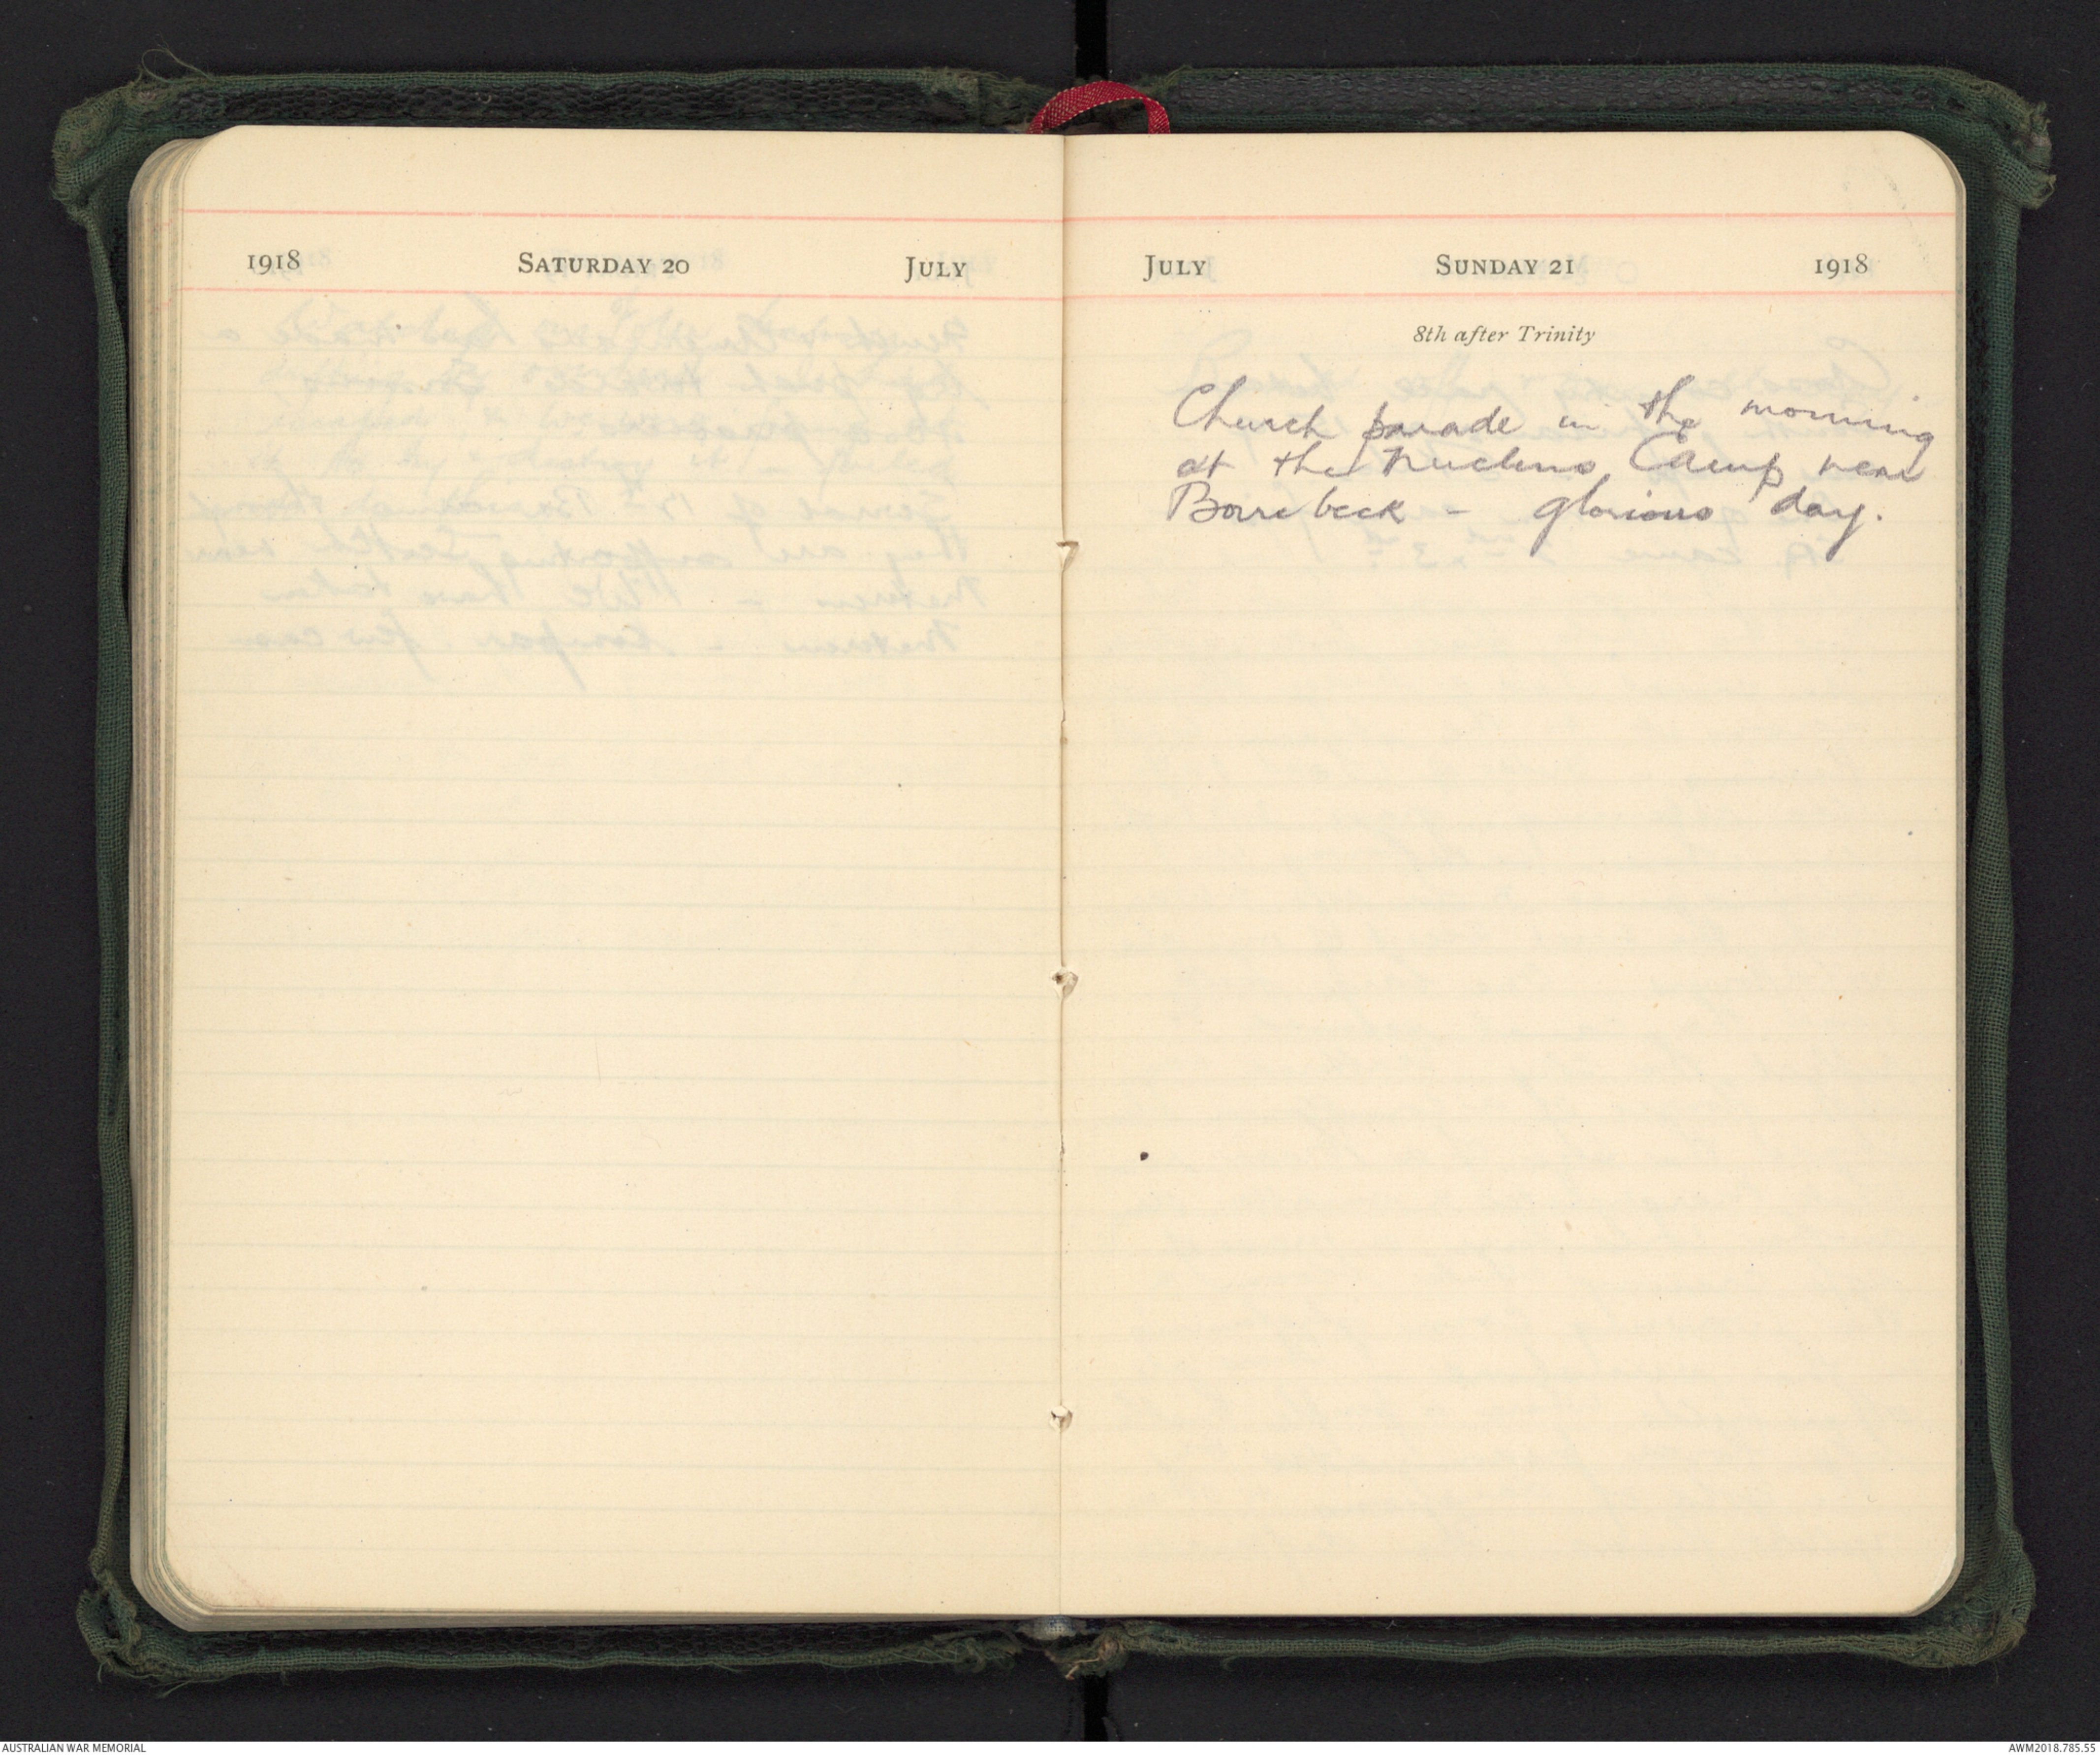 1918 SATURDAY 20 JULY
JULY SUNDAY 21 1918
8th after Trinity
Church parade in the morning
at the nucleus Camp near
Borrebeck - glorious day.
AUSTRALIAN WAR MEMORIAL
AWM2018.785.55